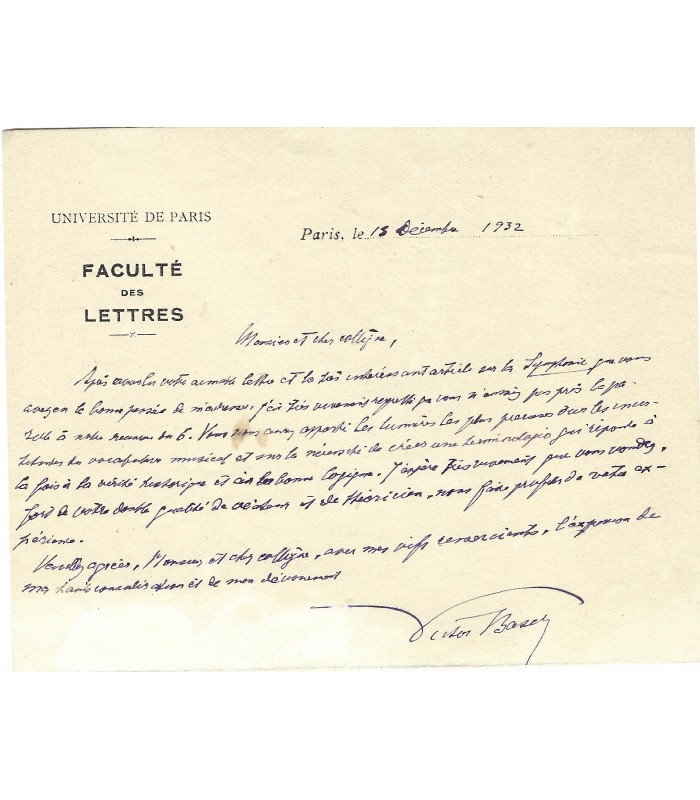 UNIVERSITÉ DE PARIS
FACULTÉ
DES
LETTRES
Paris, le 15 Décembre 1932
Monsieur et cher collègue,
Après avoir lu votre aimable lettre et le très intéressant article sur la Symphonie que vous
avez eu la bonne pensée de m'adresser, j'ai très vivement regretté que vous n'ayiez pas pris la pa-
role à notre réunion du 6. Vous nous auriez apporté les lumières les plus précieuses sur les incer-
titudes du vocabulaire musical et sur la nécessité de créer une terminologie qui réponde à
la fois à la vérité historique et à la bonne logique. J'espère très vivement que vous voudrez,
fort de votre double qualité de créateur et de théoricien, nous faire profiter de votre ex-
périence.
Veuillez agréer, Monsieur et cher collègue, avec mes vifs remerciements, l'expression de
ma haute considération et de mon dévouement
Victor Basch